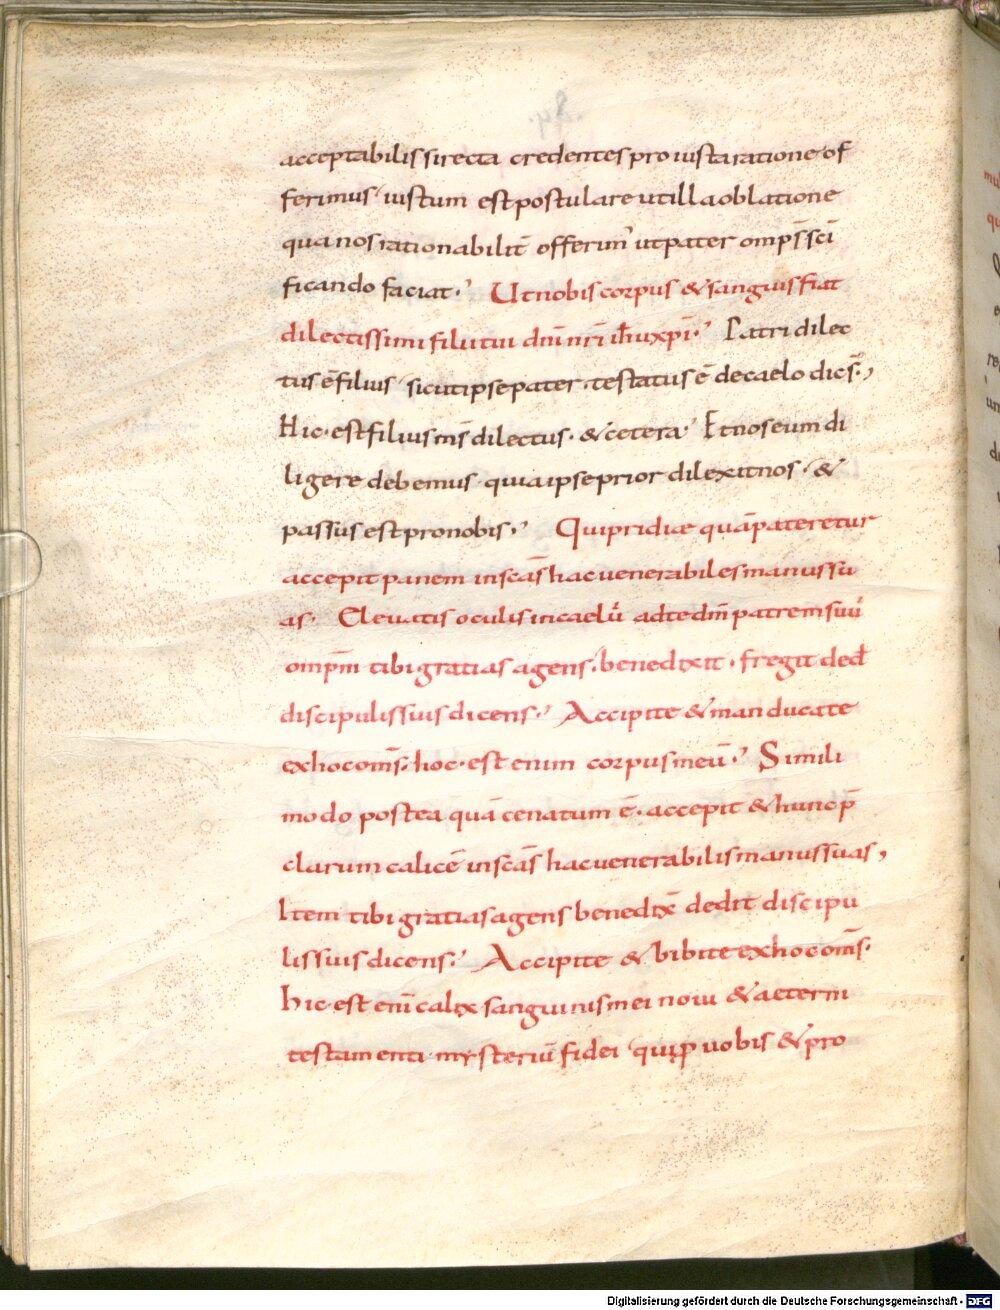 acceptabilis si recta credentes pro iusta ratione of
ferimus iustum est postulare ut illa oblatione
qua nos rationabilit̄ offerim᾽ ut pater omp̄s s̄ci
ficando faciat. Ut nobis corpus & sanguis fiat
dilectissimi filii tui dn̄i nr̄i ih̄u xp̄i. Patri dilec
tus ē filius sicut ipse pater testatus ē de caelo dic̄s.,
Hic est filius m̄s dilectus. & cetera. Et nos eum di
ligere debemus quia ipse prior dilexit nos. &
passus est pro nobis. Qui pridiæ quā pateretur
accepit panem in sc̄as hac venerabiles manus su
as. Elevatis oculis in caelū ad te dm̄ patrem suū
omp̄m tibi gratias agens. benedixit. fregit ded̄
discipulis suis dicens. Accipite & manducate
ex hoc om̄s. hoc. est enim corpus meū. Simili
modo postea quā cenatum ē. accepit & hunc p̄
clarum calicē in sc̄as hac venerabilis manus suas,
Item tibi gratias agens benedix̄ dedit discipu
lis suis dicens. Accipite & bibite ex hoc om̄s.
hic est eni̅ calix sanguinis mei novi & aeterni
testamenti mysteriū fidei qui p̱ vobis & pro
Digitalisierung gefördert durch die Deutsche Forschungsgemeinschaft - DFG